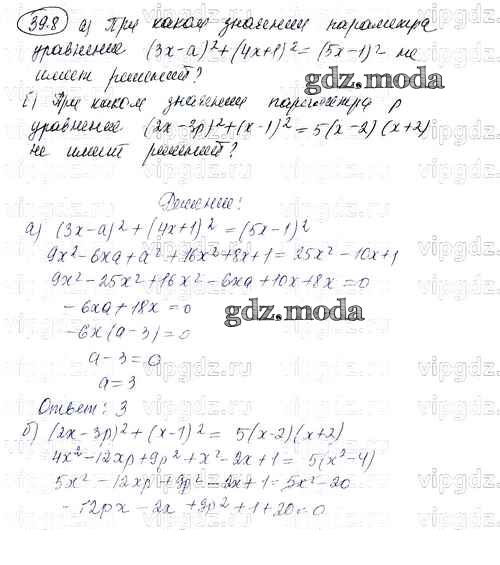 39.8 а) При каком значении параметра
уравнение (3x-a)²+(4x+1)²=(5x-1)² не
имеет решений?
б) При каком значении параметра p
уравнение (2x-3p)²+(x-1)²=5(x-2)(x+2)
не имеет решений?
Решение:
а) (3x-a)²+(4x+1)²=(5x-1)²
9x²-6xa+a²+16x²+8x+1=25x²-10x+1
9x²-25x²+16x²-6xa+10x+8x=0
-6xa+18x=0
-6x(a-3)=0
a-3=0
a=3
Ответ: 3
б) (2x-3p)²+(x-1)²=5(x-2)(x+2)
4x²-12xp+9p²+x²-2x+1=5(x²-4)
5x²-12xp+9p²-2x+1=5x²-20
-12px-2x+9p²+1+20=0
gdz.moda
gdz.moda
vipgdz.ru